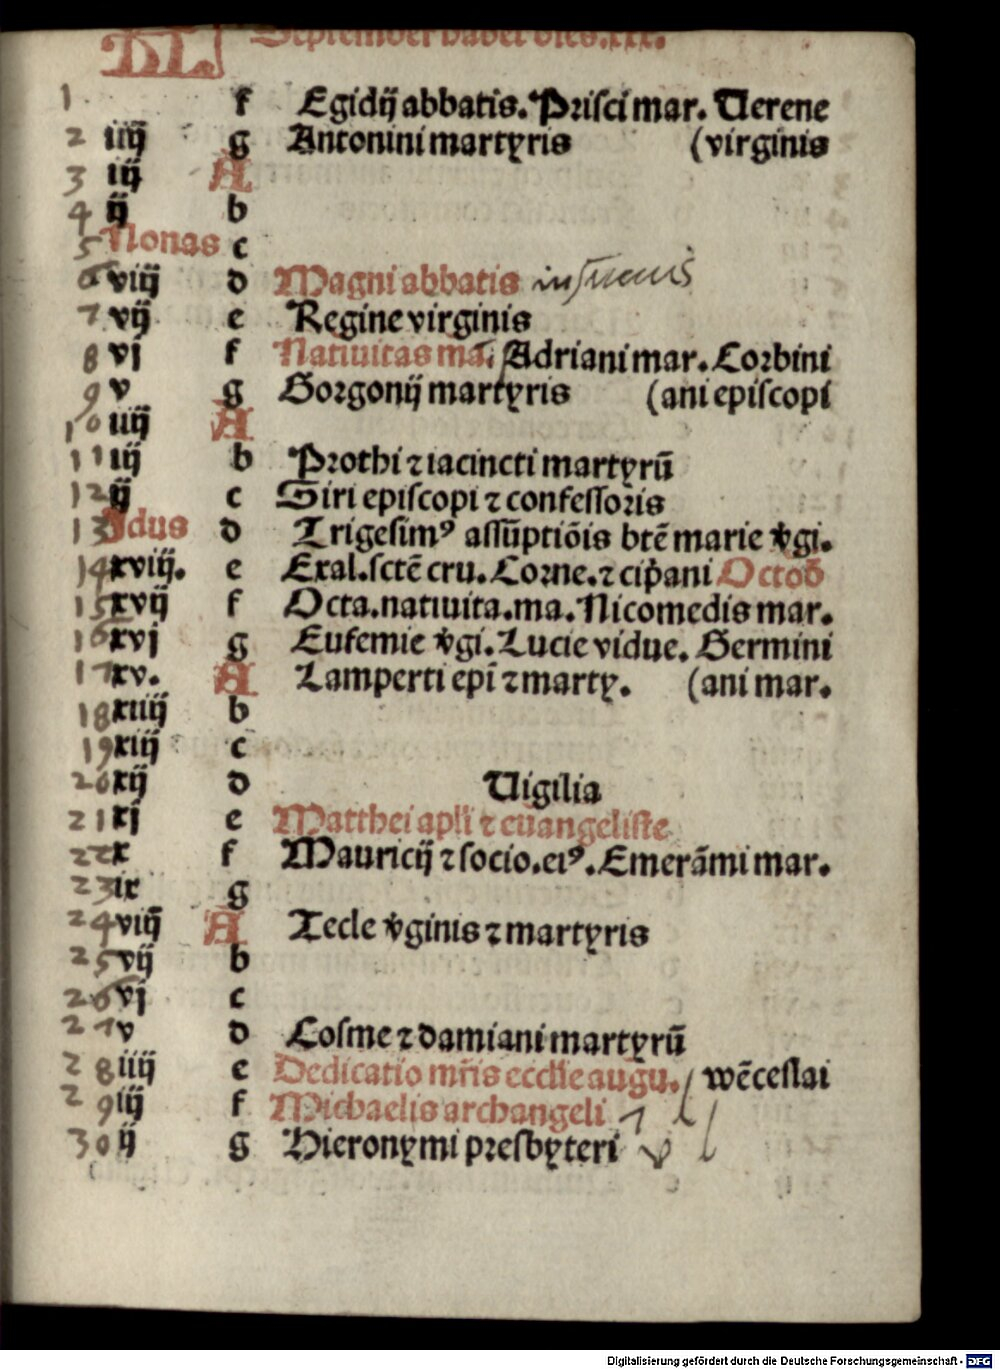 KL September habet dies.xxx.
1 f Egidij abbatis. Prisci mar. Uerene
2 iiij g Antonini martyris (virginis
3 iij A
4 ij b
5 Nonas c
6 viij d Magni abbatis
7 vij e Regine virginis
8 vj f Natiuitas ma. Adriani mar. Corbini
9 v g Gorgonij martyris (ani episcopi
10 iiij A
11 iij b Prothi ⁊ iacincti martyrū
12 ij c Siri episcopi ⁊ confessoris
13 Idus d Trigesimꝰ assūptiōis btē marie v̊gi.
14 xviij. e Exal.sctē cru. Corne.⁊ cip̄ani Octob̄
15 xvij f Octa.natiuita.ma. Nicomedis mar.
16 xvj g Eufemie v̊gi. Lucie vidue. Germini
17 xv. A Lamperti epī ⁊ marty. (ani mar.
18 xiiij b
19 xiij c
20 xij d Uigilia
21 xj e Matthei apl̄i ⁊ euangeliste
22 x f Mauricij ⁊ socio.eiꝰ. Emerāmi mar.
23 ix g
24 viij A Tecle v̊ginis ⁊ martyris
25 vij b
26 vj c
27 v d Cosme ⁊ damiani martyrū
28 iiij e Dedicatio mr̄is eccl̄ie augu. wēceslai
29 iij f Michaelis archangeli
30 ij g Hieronymi presbyteri
Digitalisierung gefördert durch die Deutsche Forschungsgemeinschaft - DFG